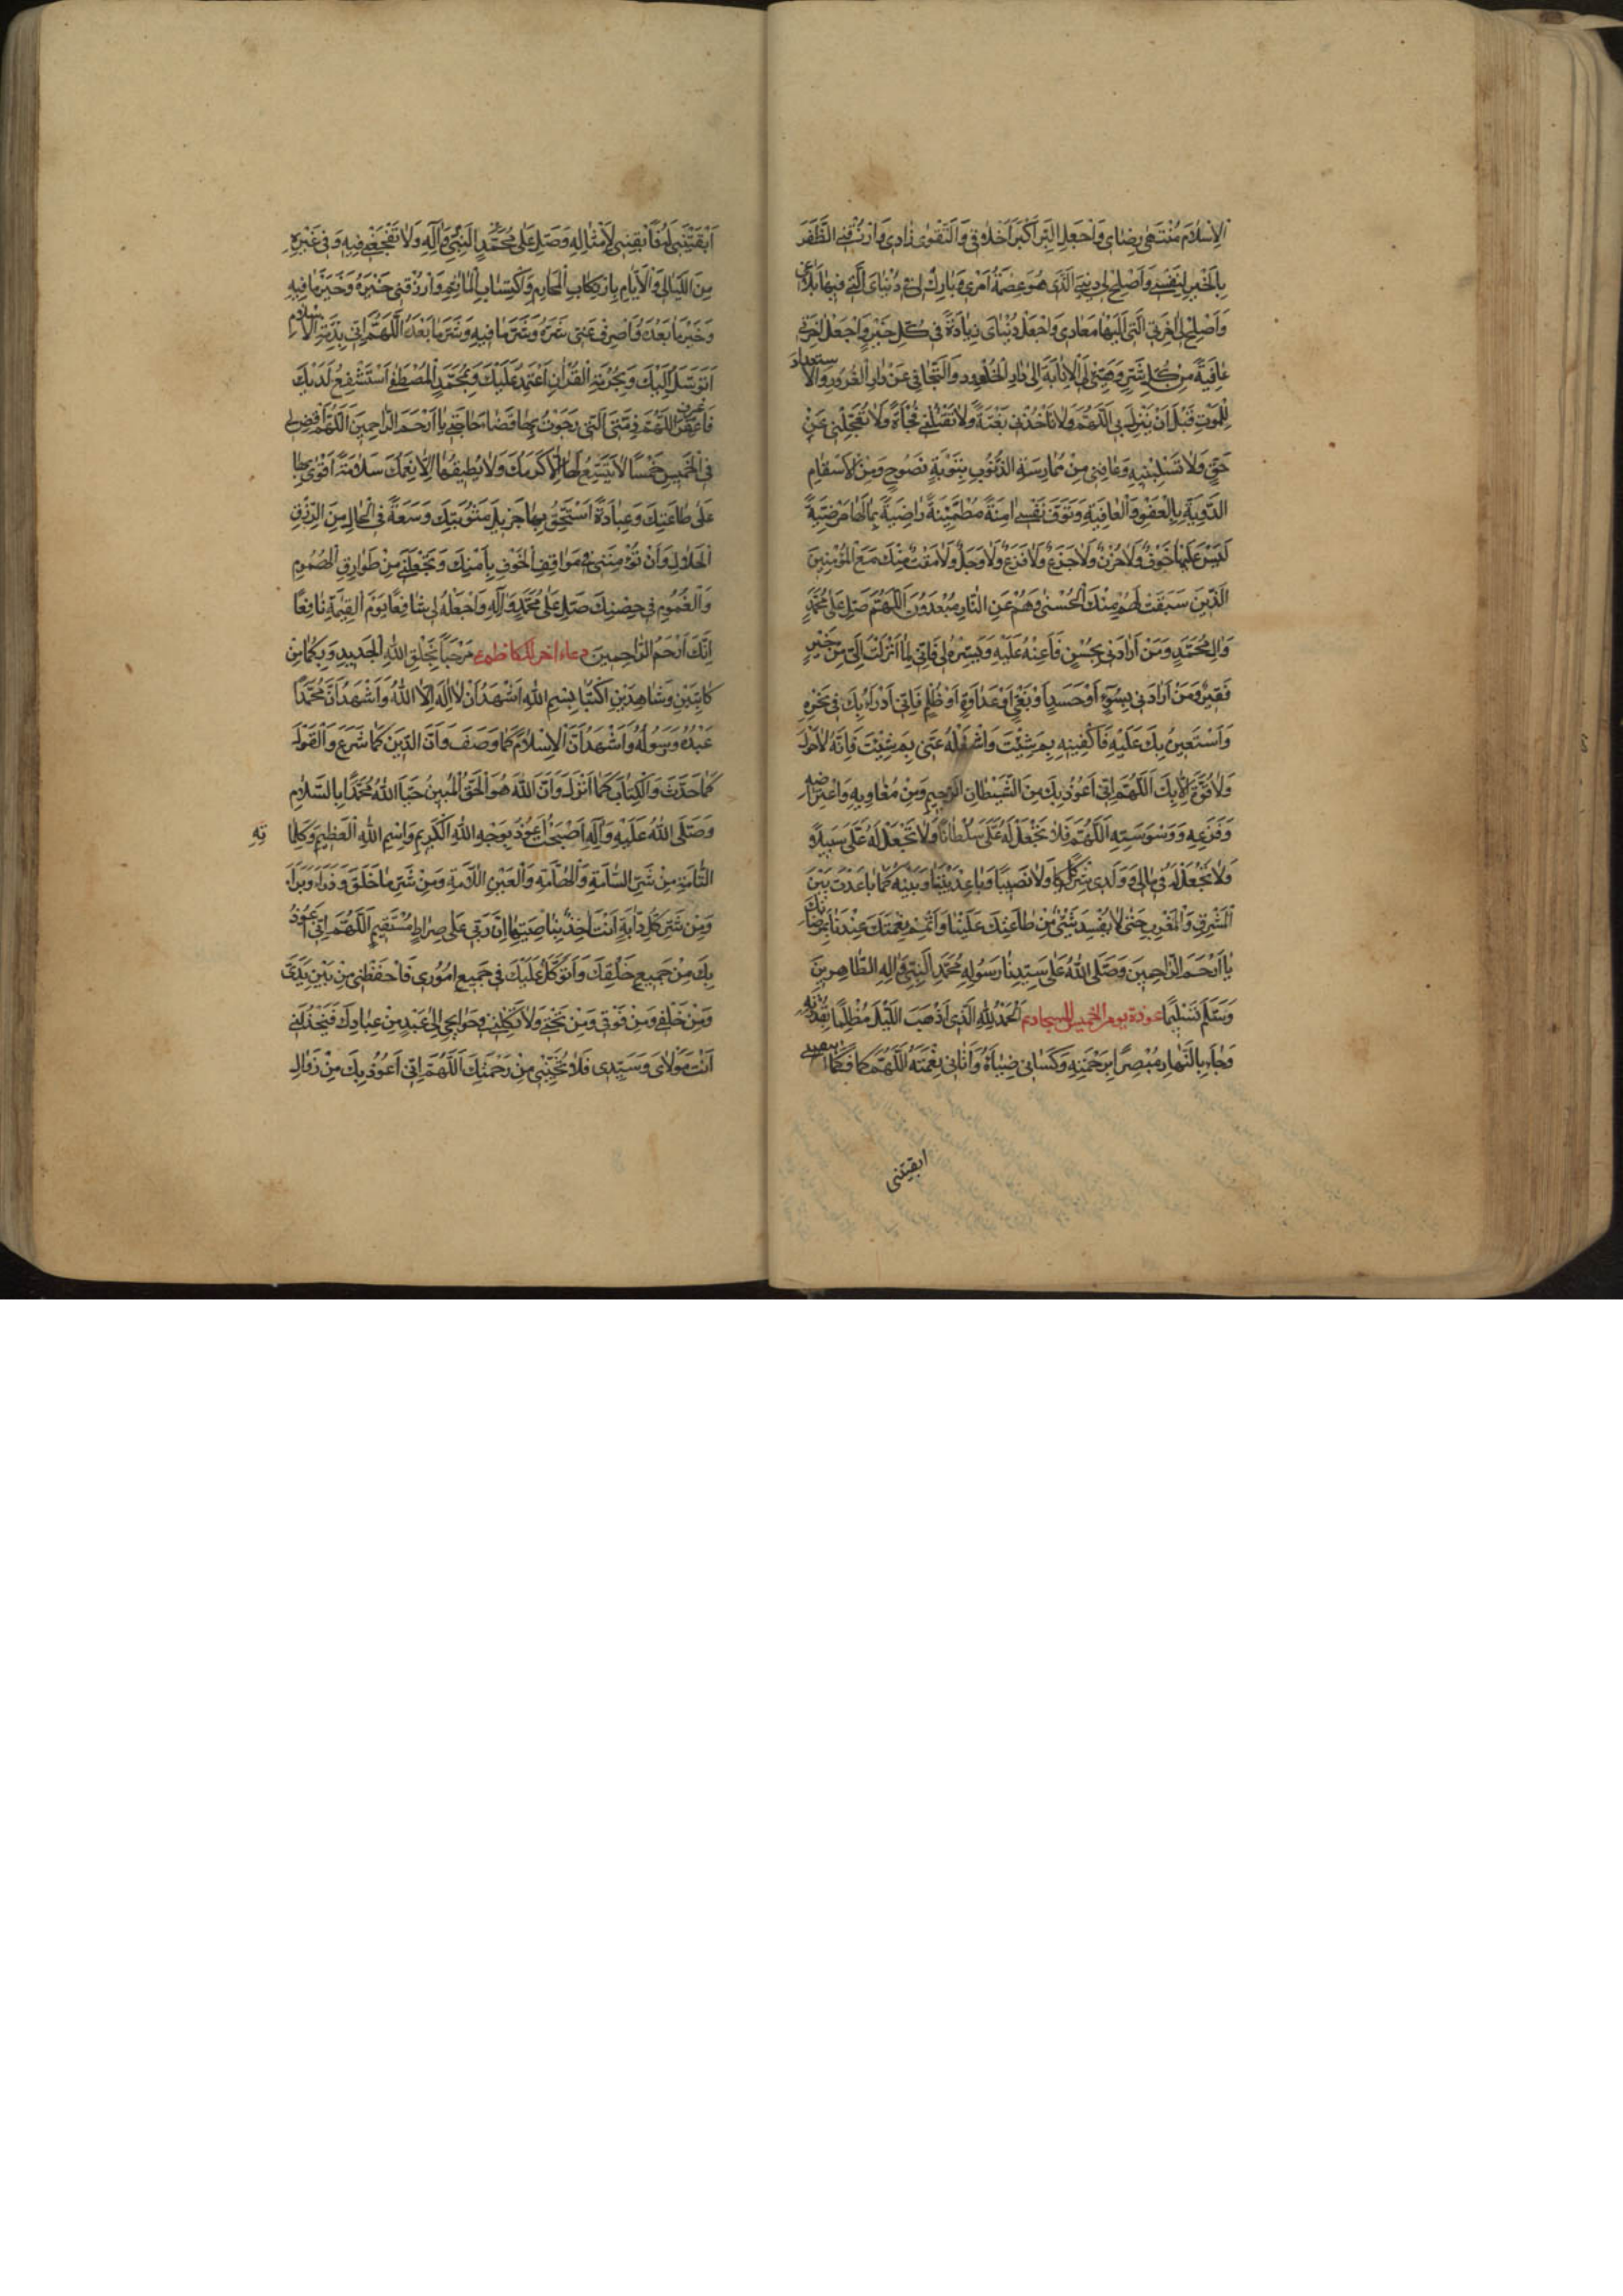 الْاِسْلَامَ مُنْتَهٰى رِضَاىَ وَاجْعَلِ الْبِرَّ اَكْبَرَ اَخْلَاقِى وَالتَّقْوٰى زَادِى وَارْزُقْنِى الظَّفَرَ
بِالْخَيْرِ لِنَفْسِى وَاَصْلِحْ لِى دِينِىَ الَّذِى هُوَ عِصْمَةُ اَمْرِى وَبَارِكْ لِى فِى دُنْيَاىَ الَّتِى فِيهَا بَلَاغِى
وَاَصْلِحْ لِى اٰخِرَتِىَ الَّتِى اِلَيْهَا مَعَادِى وَاجْعَلْ دُنْيَاىَ زِيَادَةً فِى كُلِّ خَيْرٍ وَاجْعَلْ اٰخِرَتِى
عَافِيَةً مِنْ كُلِّ شَرٍّ وَهَيِّئْ لِىَ الْاِنَابَةَ اِلٰى دَارِ الْخُلُودِ وَالتَّجَافِىَ عَنْ دَارِ الْغُرُورِ وَالْاِسْتِعْدَادَ
لِلْمَوْتِ قَبْلَ اَنْ يَنْزِلَ بِى اَللّٰهُمَّ وَلَا تَأْخُذْنِى بَغْتَةً وَلَا تَقْتُلْنِى فُجْأَةً وَلَا تُعَجِّلْنِى عَنْ
حَقٍّ وَلَا تَسْلُبْنِيهِ وَعَافِنِى مِنْ مُمَارَسَةِ الذُّنُوبِ بِتَوْبَةٍ نَصُوحٍ وَمِنَ الْاَسْقَامِ
الدَّوِيَّةِ بِالْعَفْوِ وَالْعَافِيَةِ وَتَوَفَّ نَفْسِى اٰمِنَةً مُطْمَئِنَّةً رَاضِيَةً بِمَا لَهَا مَرْضِيَّةً
لَيْسَ عَلَيْهَا خَوْفٌ وَلَا حُزْنٌ وَلَا جَزَعٌ وَلَا فَزَعٌ وَلَا وَجَلٌ وَلَا مَقْتٌ مِنْكَ مَعَ الْمُؤْمِنِينَ
الَّذِينَ سَبَقَتْ لَهُمْ مِنْكَ الْحُسْنٰى وَهُمْ عَنِ النَّارِ مُبْعَدُونَ اَللّٰهُمَّ صَلِّ عَلٰى مُحَمَّدٍ
وَاٰلِ مُحَمَّدٍ وَمَنْ اَرَادَنِى بِحُسْنٍ فَاَعِنْهُ عَلَيْهِ وَيَسِّرْهُ لِى فَاِنِّى لِمَا اَنْزَلْتَ اِلَىَّ مِنْ خَيْرٍ
فَقِيرٌ وَمَنْ اَرَادَنِى بِسُوءٍ اَوْ حَسَدٍ اَوْ بَغْىٍ اَوْ عَدَاوَةٍ اَوْ ظُلْمٍ فَاِنِّى اَدْرَاُ بِكَ فِى نَحْرِهِ
وَاَسْتَعِينُ بِكَ عَلَيْهِ فَاكْفِنِيهِ بِمَ شِئْتَ وَاشْغَلْهُ عَنِّى بِمَ شِئْتَ فَاِنَّهُ لَا حَوْلَ
وَلَا قُوَّةَ اِلَّا بِكَ اَللّٰهُمَّ اِنِّى اَعُوذُ بِكَ مِنَ الشَّيْطَانِ الرَّجِيمِ وَمِنْ مُغَاوِيهِ وَاعْتِرَاضِهِ
وَفَزَعِهِ وَوَسْوَسَتِهِ اَللّٰهُمَّ فَلَا تَجْعَلْ لَهُ عَلَىَّ سُلْطَانًا وَلَا تَجْعَلْ لَهُ عَلَىَّ سَبِيلًا
وَلَا تَجْعَلْ لَهُ فِى مَالِى وَوَلَدِى شِرْكًا وَلَا نَصِيبًا وَبَاعِدْ بَيْنَنَا وَبَيْنَهُ كَمَا بَاعَدْتَ بَيْنَ
الْمَشْرِقِ وَالْمَغْرِبِ حَتّٰى لَا يُفْسِدَ شَيْئًا مِنْ طَاعَتِكَ عَلَيْنَا وَاَتْمِمْ نِعْمَتَكَ عِنْدَنَا بِمَرْضَاتِكَ
يَا اَرْحَمَ الرَّاحِمِينَ وَصَلَّى اللّٰهُ عَلٰى سَيِّدِنَا رَسُولِهِ مُحَمَّدٍ النَّبِىِّ وَاٰلِهِ الطَّاهِرِينَ
وَسَلَّمَ تَسْلِيمًا عوذة يوم الخميس للسجاد ع اَلْحَمْدُ لِلّٰهِ الَّذِى اَذْهَبَ اللَّيْلَ مُظْلِمًا بِقُدْرَتِهِ
وَجَاءَ بِالنَّهَارِ مُبْصِرًا بِرَحْمَتِهِ وَكَسَانِى ضِيَاءَهُ وَاٰتَانِى نِعْمَتَهُ اَللّٰهُمَّ فَكَمَا
ابقيتنى
اَبْقَيْتَنِى لَهُ فَاَبْقِنِى لِاَمْثَالِهِ وَصَلِّ عَلٰى مُحَمَّدٍ النَّبِىِّ وَاٰلِهِ وَلَا تَفْجَعْنِى فِيهِ وَفِى غَيْرِهِ
مِنَ اللَّيَالِى وَالْاَيَّامِ بِارْتِكَابِ الْمَحَارِمِ وَاكْتِسَابِ الْمَاٰثِمِ وَارْزُقْنِى خَيْرَهُ وَخَيْرَ مَا فِيهِ
وَخَيْرَ مَا بَعْدَهُ وَاصْرِفْ عَنِّى شَرَّهُ وَشَرَّ مَا فِيهِ وَشَرَّ مَا بَعْدَهُ اَللّٰهُمَّ اِنِّى بِذِمَّةِ الْاِسْلَامِ
اَتَوَسَّلُ اِلَيْكَ وَبِحُرْمَةِ الْقُرْاٰنِ اَعْتَمِدُ عَلَيْكَ وَبِمُحَمَّدٍ الْمُصْطَفٰى اَسْتَشْفِعُ لَدَيْكَ
فَاعْرِفِ اللّٰهُمَّ ذِمَّتِىَ الَّتِى رَجَوْتُ بِهَا قَضَاءَ حَاجَتِى يَا اَرْحَمَ الرَّاحِمِينَ اَللّٰهُمَّ اقْضِ لِى
فِى الْخَمِيسِ خَمْسًا لَا يَتَّسِعُ لَهَا اِلَّا كَرَمُكَ وَلَا يُطِيقُهَا اِلَّا نِعَمُكَ سَلَامَةً اَقْوٰى بِهَا
عَلٰى طَاعَتِكَ وَعِبَادَةً اَسْتَحِقُّ بِهَا جَزِيلَ مَثُوبَتِكَ وَسَعَةً فِى الْحَالِ مِنَ الرِّزْقِ
الْحَلَالِ وَاَنْ تُؤْمِنَنِى فِى مَوَاقِفِ الْخَوْفِ بِاَمْنِكَ وَتَجْعَلَنِى مِنْ طَوَارِقِ الْهُمُومِ
وَالْغُمُومِ فِى حِصْنِكَ صَلِّ عَلٰى مُحَمَّدٍ وَاٰلِهِ وَاجْعَلْهُ لِى شَافِعًا يَوْمَ الْقِيٰمَةِ نَافِعًا
اِنَّكَ اَرْحَمُ الرَّاحِمِينَ دعاء اخر للكاظم ع مَرْحَبًا بِخَلْقِ اللّٰهِ الْجَدِيدِ وَبِكُمَا مِنْ
كَاتِبَيْنِ وَشَاهِدَيْنِ اكْتُبَا بِسْمِ اللّٰهِ اَشْهَدُ اَنْ لَا اِلٰهَ اِلَّا اللّٰهُ وَاَشْهَدُ اَنَّ مُحَمَّدًا
عَبْدُهُ وَرَسُولُهُ وَاَشْهَدُ اَنَّ الْاِسْلَامَ كَمَا وَصَفَ وَاَنَّ الدِّينَ كَمَا شَرَعَ وَالْقَوْلَ
كَمَا حَدَّثَ وَالْكِتَابَ كَمَا اَنْزَلَ وَاَنَّ اللّٰهَ هُوَ الْحَقُّ الْمُبِينُ حَيَّا اللّٰهُ مُحَمَّدًا بِالسَّلَامِ
وَصَلَّى اللّٰهُ عَلَيْهِ وَاٰلِهِ اَصْبَحْتُ اَعُوذُ بِوَجْهِ اللّٰهِ الْكَرِيمِ وَاسْمِ اللّٰهِ الْعَظِيمِ وَكَلِمَاتِهِ
التَّامَّةِ مِنْ شَرِّ السَّامَّةِ وَالْهَامَّةِ وَالْعَيْنِ اللَّامَّةِ وَمِنْ شَرِّ مَا خَلَقَ وَذَرَاَ وَبَرَاَ
وَمِنْ شَرِّ كُلِّ دَابَّةٍ اَنْتَ اٰخِذٌ بِنَاصِيَتِهَا اِنَّ رَبِّى عَلٰى صِرَاطٍ مُسْتَقِيمٍ اَللّٰهُمَّ اِنِّى اَعُوذُ
بِكَ مِنْ جَمِيعِ خَلْقِكَ وَاَتَوَكَّلُ عَلَيْكَ فِى جَمِيعِ اُمُورِى فَاحْفَظْنِى مِنْ بَيْنِ يَدَىَّ
وَمِنْ خَلْفِى وَمِنْ فَوْقِى وَمِنْ تَحْتِى وَلَا تَكِلْنِى فِى حَوَائِجِى اِلٰى عَبْدٍ مِنْ عِبَادِكَ فَيَخْذُلَنِى
اَنْتَ مَوْلَاىَ وَسَيِّدِى فَلَا تُخَيِّبْنِى مِنْ رَحْمَتِكَ اَللّٰهُمَّ اِنِّى اَعُوذُ بِكَ مِنْ زَوَالِ